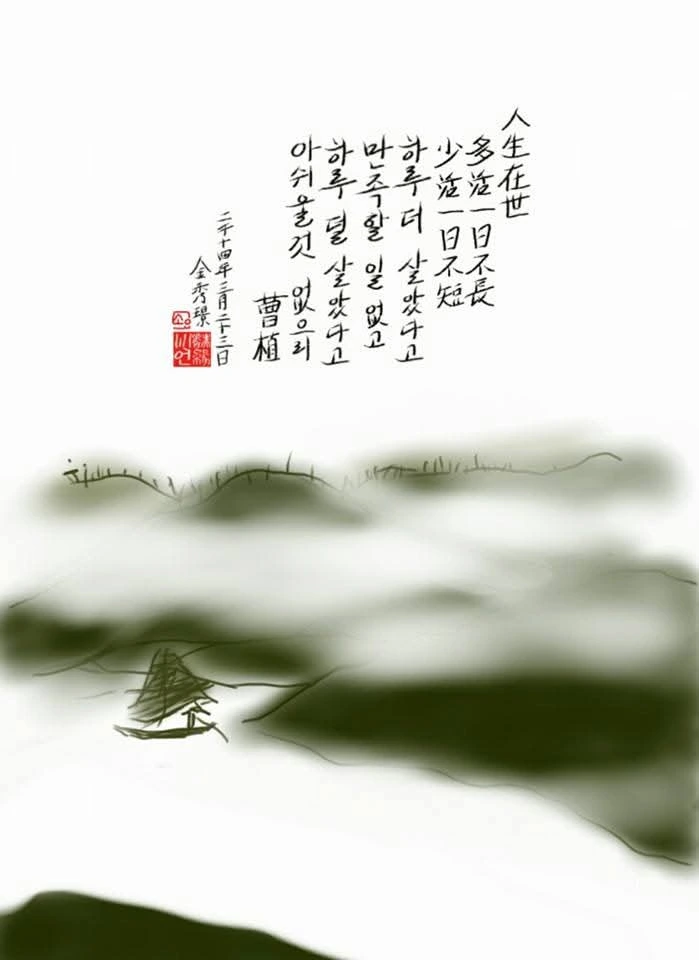 人生在世
多活一日不長
少活一日不短
하루 더 살았다고
만족할 일 없고
하루 덜 살았다고
아쉬울것 없으리
曹植
二千十四年三月二十三日
金秀璟